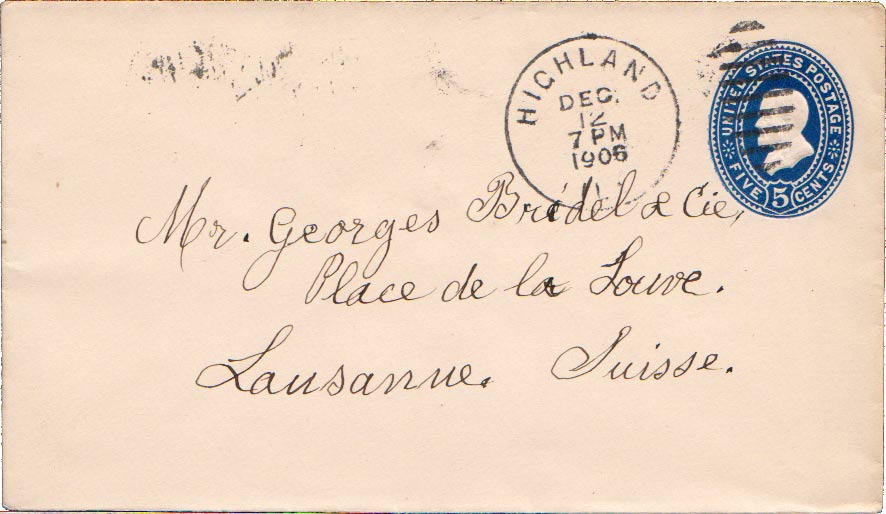 HIGHLAND
DEC.
12
7 PM
1906
UNITED STATES POSTAGE
FIVE 5 CENTS
Mr. Georges Bridel & Cie,
Place de la Louve.
Lausanne. Suisse.